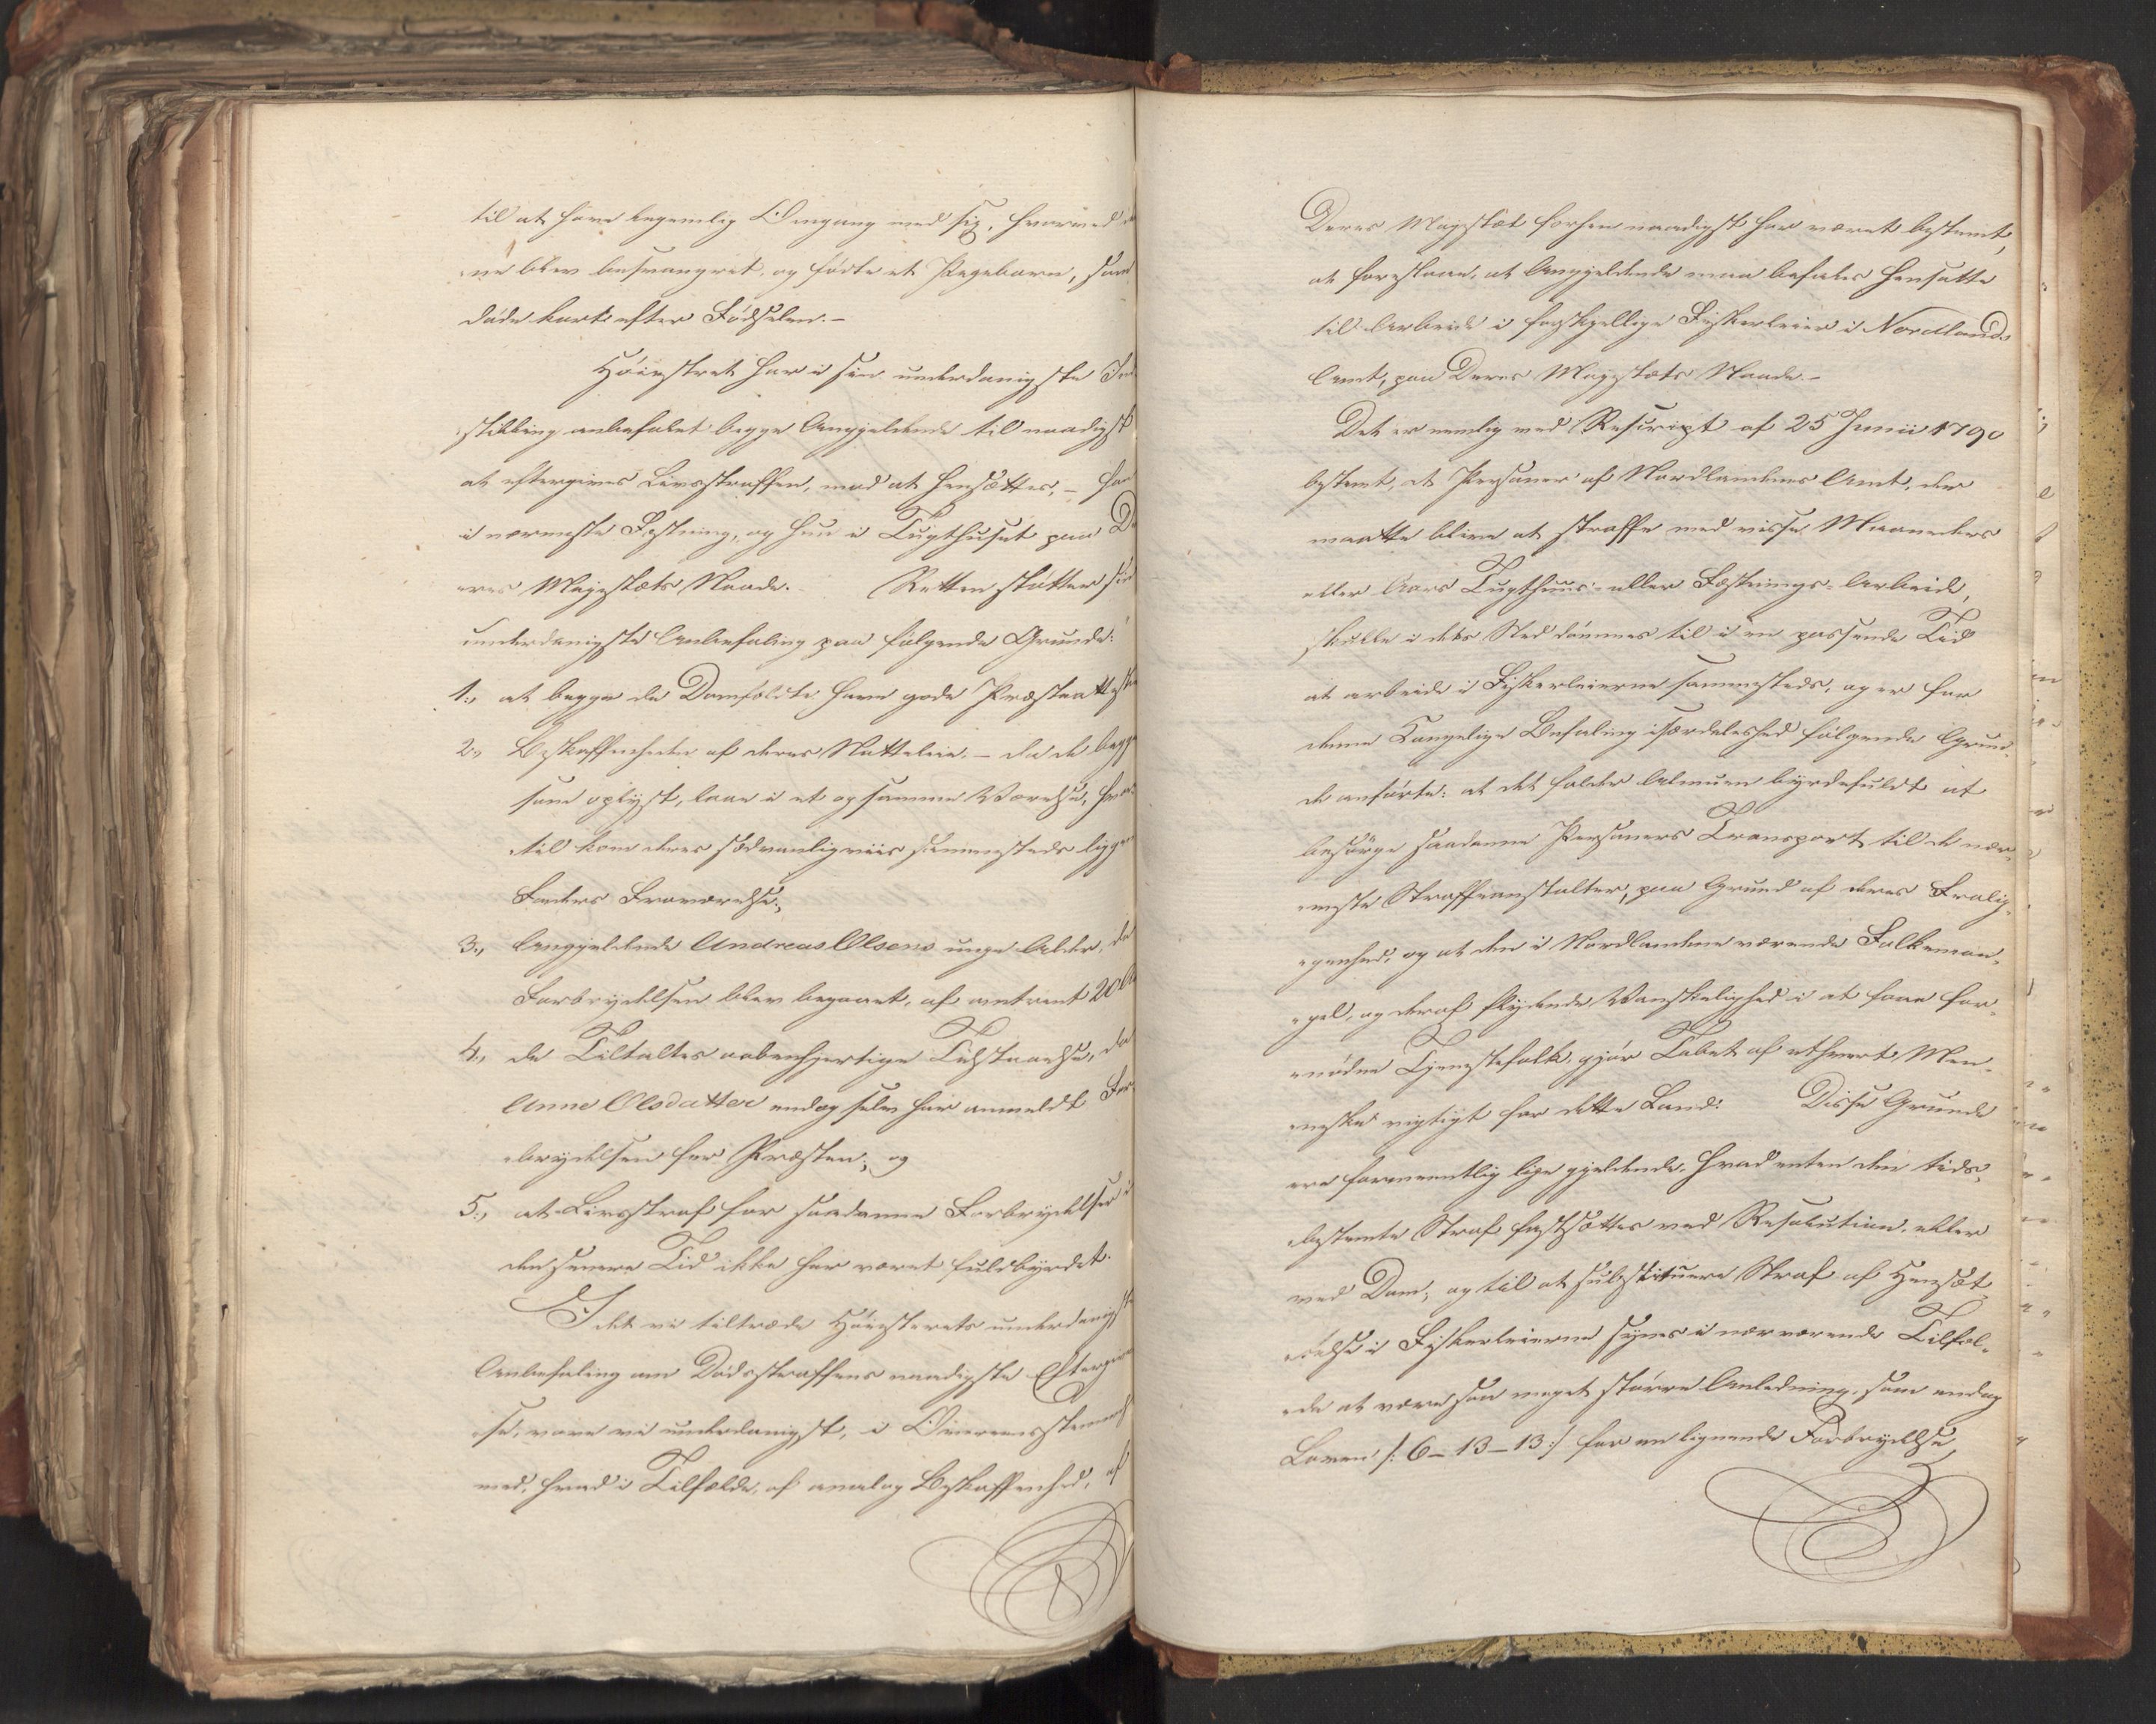 til at have legemlig Omgang med sig, hvorved
ne blev besvangret, og fødte et Pigebarn, som
døde kort efter Fødselen. –
Høiesteret har i sin underdanigste Ind
stilling anbefalet begge Angjeldende til naadigst
at eftergives Livsstraffen, mod at hensættes, – han
i nærmeste Fæstning, og hun i Tugthuset paa De
eres Majestæts Naade. Retten støtter sin
underdanigste Anbefaling paa følgende Grunde:
1., at begge de Domfældte have gode Præsteattester
2., Beskaffenheden af deres Natteleie, – da de begge
som oplyst, laae i et og samme Værelse, hvor
til kom deres sædvanligviis sammesteds liggen
Faders Fraværelse;
3., Angjeldende Andreas Olsens unge Alder, da
Forbrydelsen blev begaaet, af omtrent 20 A
4., de Tiltaltes aabenhjertige Tilstaaelse, da
Anne Olsdatter endog selv har anmeldt For
brydelsen for Præsten; og
5., at Livsstraf for saadanne Forbrydelser i
den senere Tid ikke har været fuldbyrdet.
Idet vi tiltræde Høiesterets underdanigste
Anbefaling om Dødsstraffens naadigste Eftergivel
se, vove vi underdanigst, i Overeensstemmelse
med, hvad i Tilfælde, af analog Beskaffenhed, af
Deres Majestæt forhen naadigst har været bestemt,
at foreslaae, at Angjeldende maa befales hensatte
til Arbeide i forskjellige Fiskerleier i Nordlands
Amt, paa Deres Majestæts Naade. –
Det er nemlig ved Rescript af 25 Junii 1790
bestemt, at Personer af Nordlandenes Amt, der
maatte blive at straffe med visse Maaneders
eller Aars Tugthuus- eller Fæstnings-Arbeide,
skulle i dets Sted dømmes til i en passende Tid
at arbeide i Fiskerleierne sammesteds, og er for
denne Kongelige Befaling isærdeleshed følgende Grun-
de anførte: at det falder Almuen byrdefuldt at
besørge saadanne Personers Transport til de nær-
meste Straffeanstalter, paa Grund af deres Fralig-
genhed, og at den i Nordlandene værende Folkeman-
gel, og deraf flydende Vanskelighed i at faae for-
nødne Tjenestefolk, gjør Tabet af ethvert Men-
neske vigtigt for dette Land: Disse Grunde
ere formeentlig lige gjeldende, hvad enten den tids-
bestemte Straf fastsættes ved Resolution, eller
ved Dom; og til at substituere Straf af Hensæt-
telse i Fiskerleierne synes i nærværende Tilfæl-
de at være saa meget større Anledning, som endog
Loven /: 6 – 13 – 13 :/ for en lignende Forbrydelse